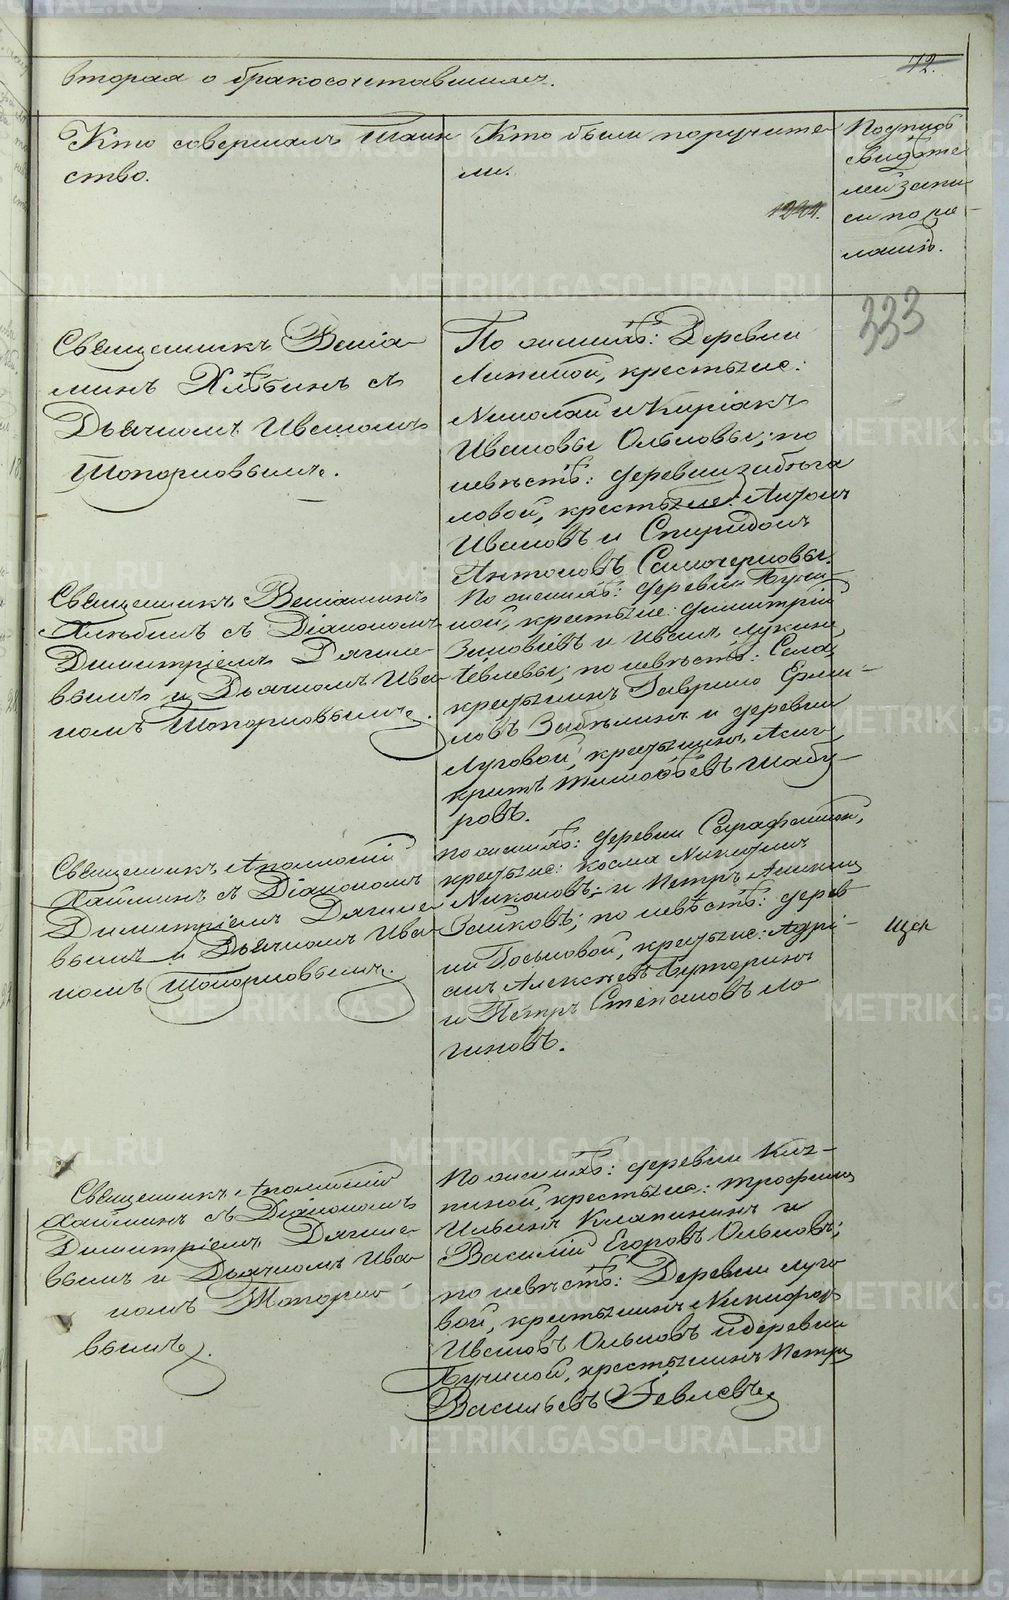 вторая о бракосочетавшихся.
12.
Кто совершалъ Таин
ство.
Кто были поручите
ли.
1241.
Подпись
свидѣте
лей запи
си по же
ланію.
333
Священникъ Веніа
минъ Хлѣбинъ съ
Дьячкомъ Иваномъ
Топорковымъ.
По женихѣ: Деревни
крестьяне:
Николай и Киріакъ
Ивановы Ольковы; по
невѣстѣ: деревни
ловой, крестьяне: Антонъ
Ивановъ и Спиридонъ
Антоновъ
Священникъ Веніаминъ
Хлѣбинъ съ Діакономъ
Димитріемъ
вымъ и Дьячкомъ Ива
номъ Топорковымъ.
По женихѣ: деревни Бучи
ной, крестьяне: Димитрій
Зиновіевъ и Иванъ Лукинъ
Тевлевы; по невѣстѣ: Села,
крестьянинъ Гаврило Ерми
ловъ и деревни
Луговой, крестьянинъ Асиг
критъ Тимоѳеевъ Шабу
ровъ.
Священникъ Аполлоній
съ Діакономъ
Димитріемъ
вымъ и Дьячкомъ Ива
номъ Топорковымъ.
По женихѣ: деревни
крестьяне: Косма
Никоновъ; и Петръ
Зайковъ; по невѣстѣ: дерев
ни Госьковой, крестьяне: Адрі
анъ Алексѣевъ Буторинъ
и Петръ Степановъ Ло
гиновъ.
Щел
Священникъ Аполлоній
съ Діакономъ
Димитріемъ
вымъ и Дьячкомъ Ива
номъ Топорко
вымъ.
По женихѣ: деревни Кла
пиной, крестьяне: Трофимъ
Ильинъ Клапининъ и
Василій Егоровъ Ольковъ;
по невѣстѣ: Деревни Луго
вой, крестьянинъ Никифоръ
Ивановъ Ольковъ и деревни
Бучиной, крестьянинъ Петръ
Васильевъ Тевлевъ.
METRIKI.GASO-URAL.RU